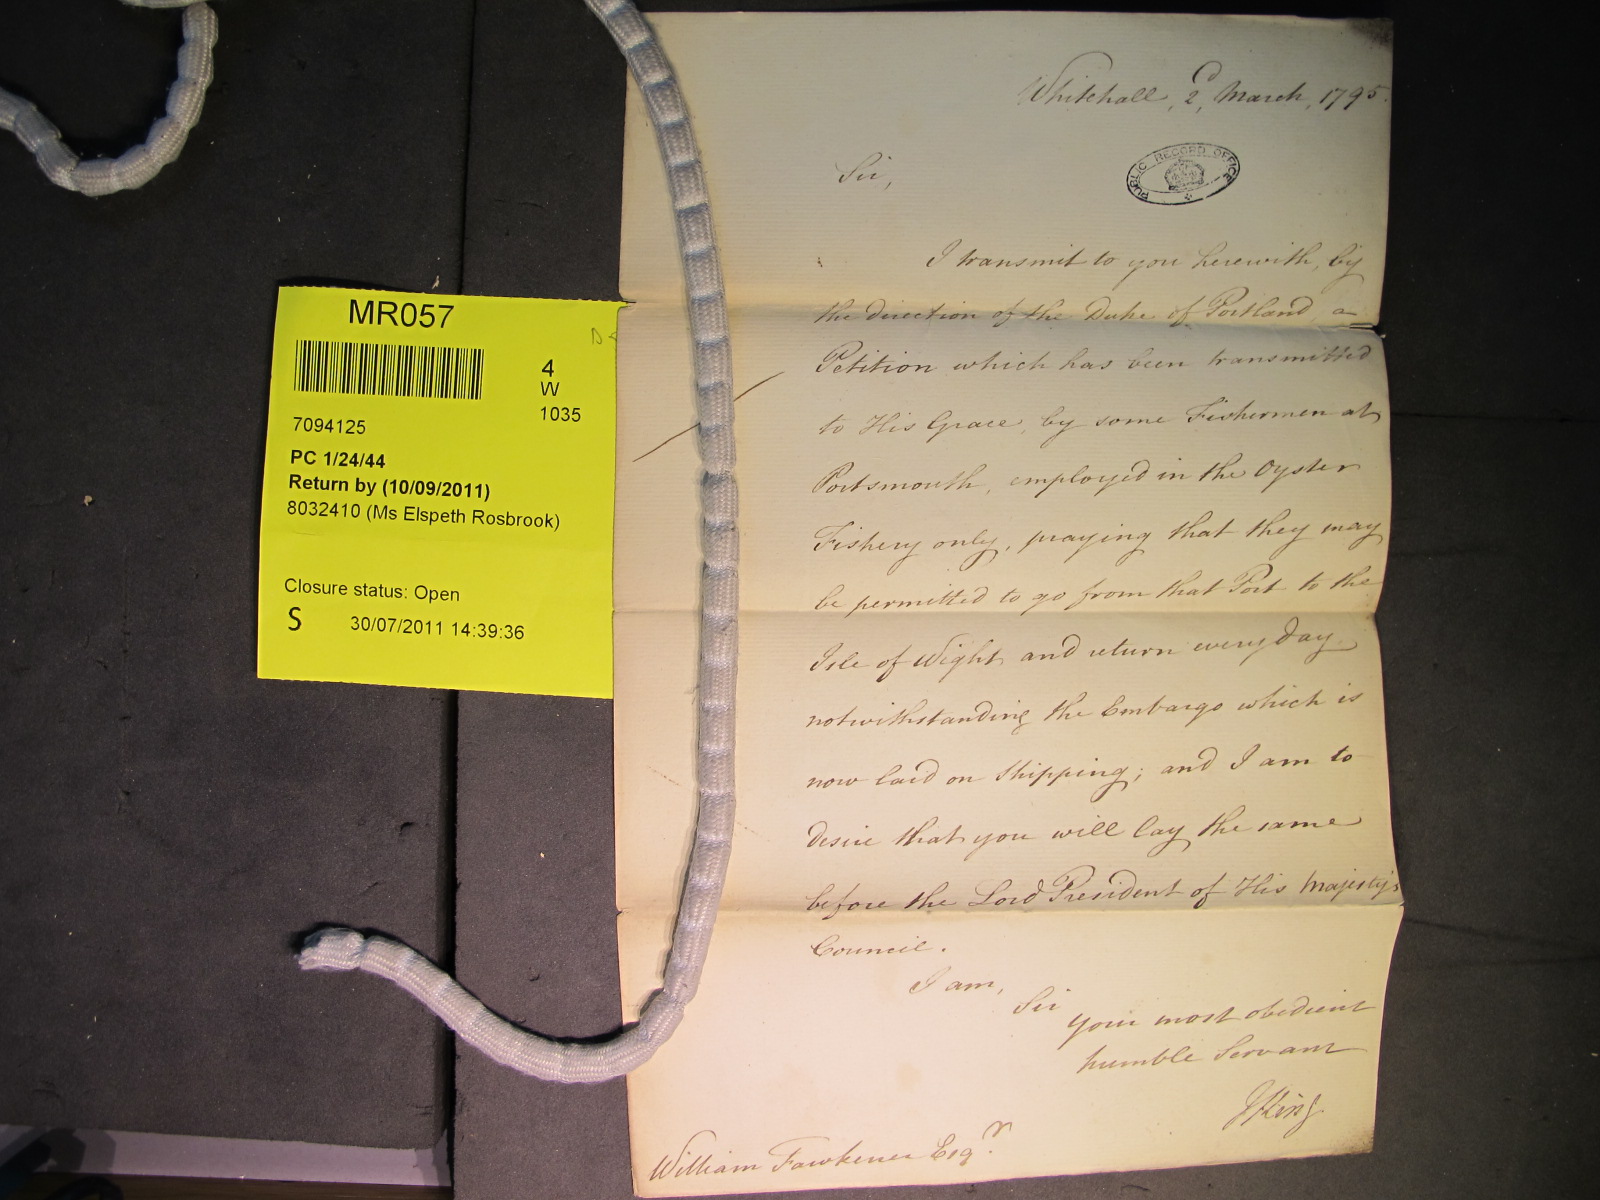 MR057
4
W
1035
7094125
PC 1/24/44
Return by (10/09/2011)
8032410 (Ms Elspeth Rosbrook)
Closure status: Open
S 30/07/2011 14:39:36
Whitehall, 2d, March, 1795.
PUBLIC RECORD OFFICE
Sir,
I transmit to you herewith, by
the direction of the Duke of Portland, a
Petition which has been transmitted
to His Grace, by some Fishermen at
Portsmouth, employed in the Oyster
Fishery only, praying that they may
be permitted to go from that Port to the
Isle of Wight and return every day
notwithstanding the Embargo which is
now laid on Shipping; and I am to
desire that you will lay the same
before the Lord President of His Majesty's
Council.
I am,
Sir
your most obedient
humble Servant
J King
William Fawkener Esqr.